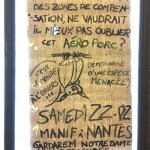 DES ZONES DE COMPEN-
SATION, NE VAUDRAIT
IL MIEUX PAS OUBLIER
CET AÉROPORC ?
D'UNE ESPECE
MENACÉE
SAMEDI 22.02
MANIF À NANTES
GARDAREM NOTRE DAME